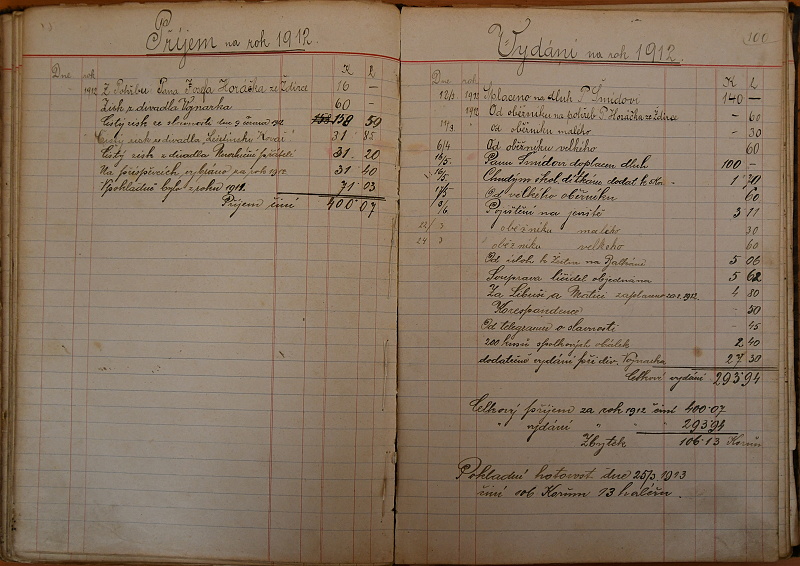 Příjem na rok 1912.
Dne rok K h
1912 Z Pohřbu Pana Josefa Horáčka ze Ždírce 16 —
Zisk z divadla Vojnarka 60 —
Čistý zisk ze slavnosti dne 9 června 1912 158 50
Čistý zisk z divadla 31 85
Čistý zisk z divadla 31 20
Na příspěvcích vybráno za rok 1912 31 40
V pokladně bylo z roku 1911. 71 03
Příjem činí 400·07
Vydání na rok 1912.
100
Dne rok K h
12/3 1912 Splaceno na dluh P Šmídovi 140 —
1912 Od oběrníku na pohřeb P Horáčka ze Ždírce — 60
od oběrníku malého — 30
6/4 Od oběrníku velkého 60
Panu Šmídovi doplacen dluh 100 —
Chudým škol. dítkám dodat. k
Od velkého oběrníku 60
Pojištění na jeviště 3 11
oběžníka malého 30
oběžníka velkého 60
5 06
Souprava líčidel objednána 5 62
Za Libuši a Matici zaplaceno 1912. 4 80
Korespondence — 50
Od telegramu o slavnosti — 45
200 kusů spolkových obálek 2 40
dodatečné vydání při div. Vojnarka 27 30
Celkové vydání 293·94
Celkový příjem za rok 1912 činí 400·07
" vydání " " " 293·94
Zbytek 106·13 Korun
Pokladní hotovost dne 25/3 1913
činí 106 Korun 13 haléřů.